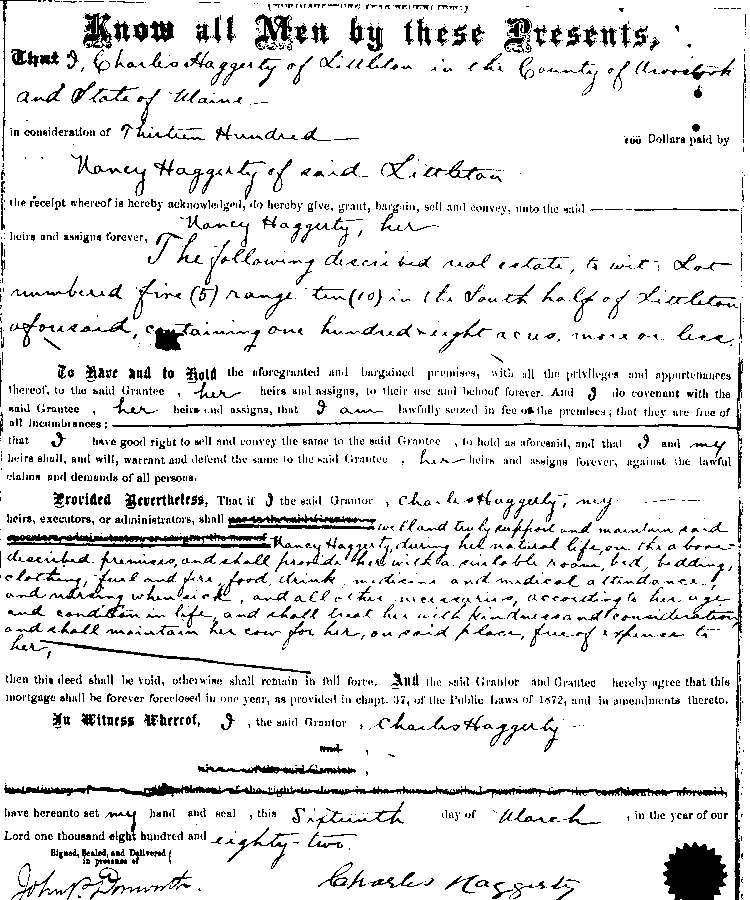 Know all Men by these Presents,
That I, Charles Haggerty of Littleton in the County of Aroostook
and State of Maine
in consideration of Thirteen Hundred 100 Dollars paid by
Nancy Haggerty of said Littleton
the receipt whereof is hereby acknowledged, do hereby give, grant, bargain, sell and convey, unto the said
Nancy Haggerty, her
heirs and assigns forever,
The following described real estate, to wit; Lot
numbered five (5) range ten (10) in the South half of Littleton
aforesaid, containing one hundred eight acres, more or less.
To Have and to Hold the aforegranted and bargained premises, with all the privileges and appurtenances
thereof, to the said Grantee, her heirs and assigns, to their use and behoof forever. And I do covenant with the
said Grantee, her heirs and assigns, that I am lawfully seized in fee of the premises; that they are free of
all Incumbrances;
that I have good right to sell and convey the same to the said Grantee, to hold as aforesaid, and that I and my
heirs shall, and will, warrant and defend the same to the said Grantee, her heirs and assigns forever, against the lawful
claims and demands of all persons.
Provided Nevertheless, That if I the said Grantor, Charles Haggerty, my
heirs, executors, or administrators, shall well and truly support and maintain said
Nancy Haggerty, during her natural life, on the above
described premises, and shall provide her with a suitable room, bed, bedding,
clothing, fuel and fire, food, drink, medicine and medical attendance,
and nursing when sick, and all other necessaries, according to her age
and condition in life, and shall treat her with kindness and consideration
and shall maintain her cow for her, on said place, free of expense to
her,
then this deed shall be void, otherwise shall remain in full force. And the said Grantor and Grantee hereby agree that this
mortgage shall be forever foreclosed in one year, as provided in chapt. 37, of the Public Laws of 1872, and in amendments thereto.
In Witness Whereof, I, the said Grantor, Charles Haggerty
and
have hereunto set my hand and seal, this Sixteenth day of March, in the year of our
Lord one thousand eight hundred and eighty-two.
Signed, Sealed, and Delivered
in presence of
John P. Donworth. Charles Haggerty